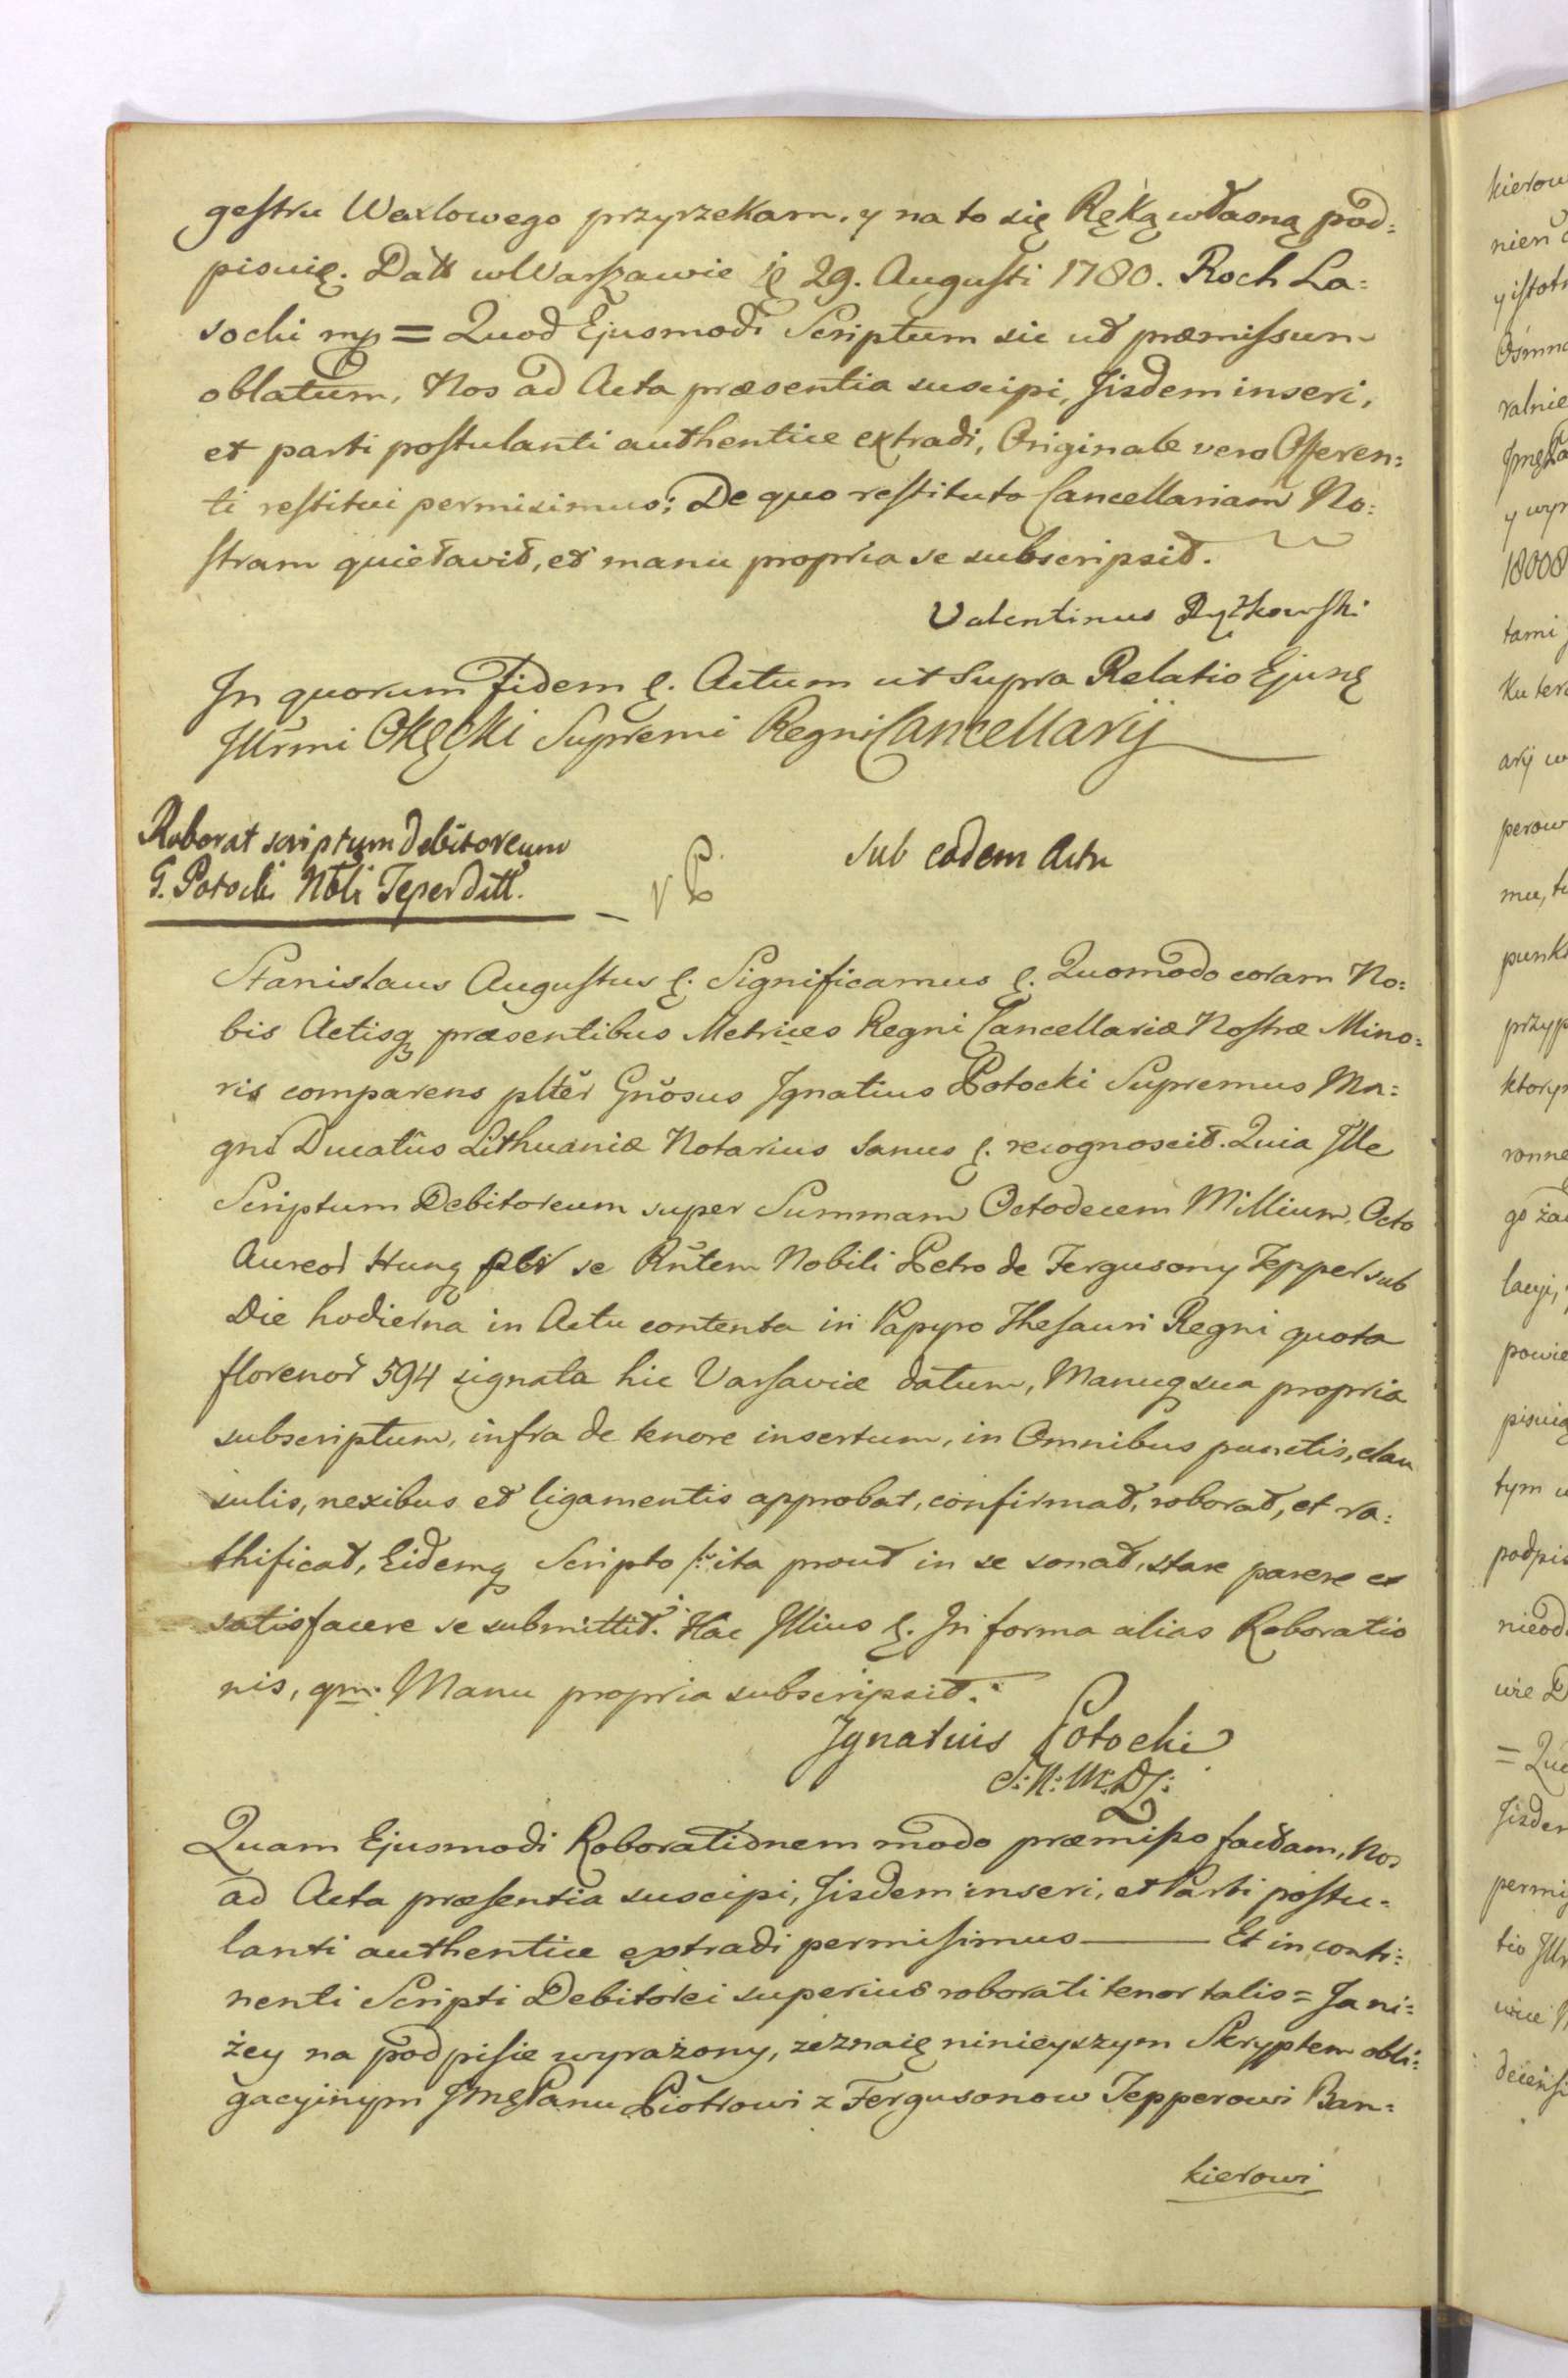 gestru Wexlowego przyrzekam, y na to się Ręką własną pod=
pisuię. Datt w Warszawie 29. Augusti 1780. Roch La=
socki mp = Quod Ejusmodi Scriptum sic ut præmissum
oblatum, Nos ad Acta præsentia suscipi, Jisdem inseri,
et parti postulanti authentice extradi, Originale vero Offeren=
ti restitui permisimus; De quo restituto Cancellariam No=
stram quietavit, et manu propria se subscripsit.
Valentinus Ryżkowski
In quorum Fidem &. Actum ut Supra Relatio Ejusq
Jllrmi Okęcki Supremi Regni Cancellarij
Roborat scriptum debitoreum
G. Potocki Nbli Teper ditt.
Sub eodem Actu
Stanislaus Augustus &. Significamus &. Quomodo coram No=
bis Actisq præsentibus Metrices Regni Cancellariæ Nostræ Mino=
ris comparens plter Gnosus Jgnatius Potocki Supremus Ma=
gni Ducatus Lithuaniæ Notarius Sanus &. recognoscit. Quia Jlle
Scriptum Debitoreum super Summam Octodecem Millium, Octo
Aureor Hung per se Rntem Nobili Petro de Fergusony Tepper sub
Die hodierna in Actu contenta in Papyro Thesauri Regni quota
florenor 594 signata hic Varsaviæ datum, Manuq sua propria
subscriptum, infra de tenore insertum, in Omnibus punctis, clau
sulis, nexibus et ligamentis approbat, confirmat, roborat, et ra=
thificat, Eidemq Scripto /: ita prout in se sonat, stare parere et
satisfacere se submittit :/ Hac Jllius &. Jn forma alias Roboratio
nis, qm. Manu propria subscripsit.
Jgnatius Potocki
S: N: M: D L:
Quam Ejusmodi Roborationem modo præmisso factam, Nos
ad Acta præsentia suscipi, Jisdem inseri, et Parti postu=
lanti authentice extradi permisimus — Et in conti=
nenti Scripti Debitorei superius roborati tenor talis = Ja ni=
żey na podpisie wyrażony, zeznaię ninieyszym Skryptem obli=
gacyinym Jmę Panu Piotrowi z Fergusonow Tepperowi Ban=
kierowi